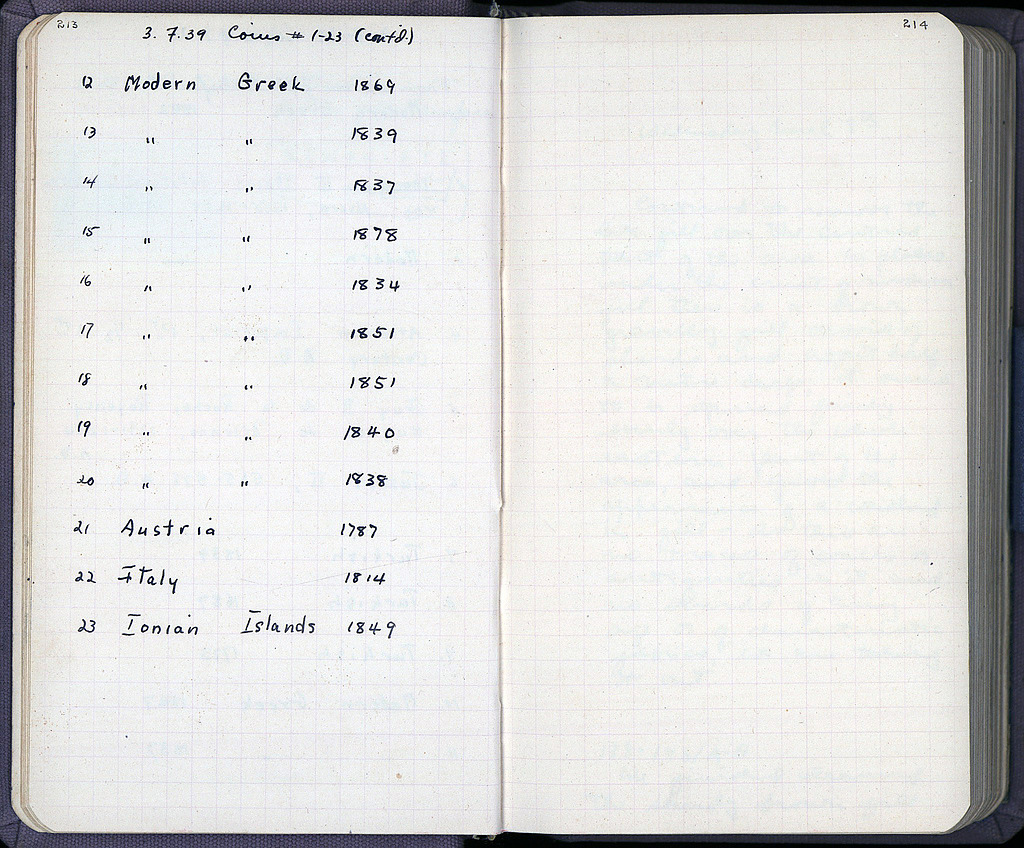 213
3. 7.39 Coins # 1-23 (cont'd.)
12 Modern Greek 1869
13 " " 1839
14 " " 1837
15 " " 1878
16 " " 1834
17 " " 1851
18 " " 1851
19 " " 1840
20 " " 1838
21 Austria 1787
22 Italy 1814
23 Ionian Islands 1849
214